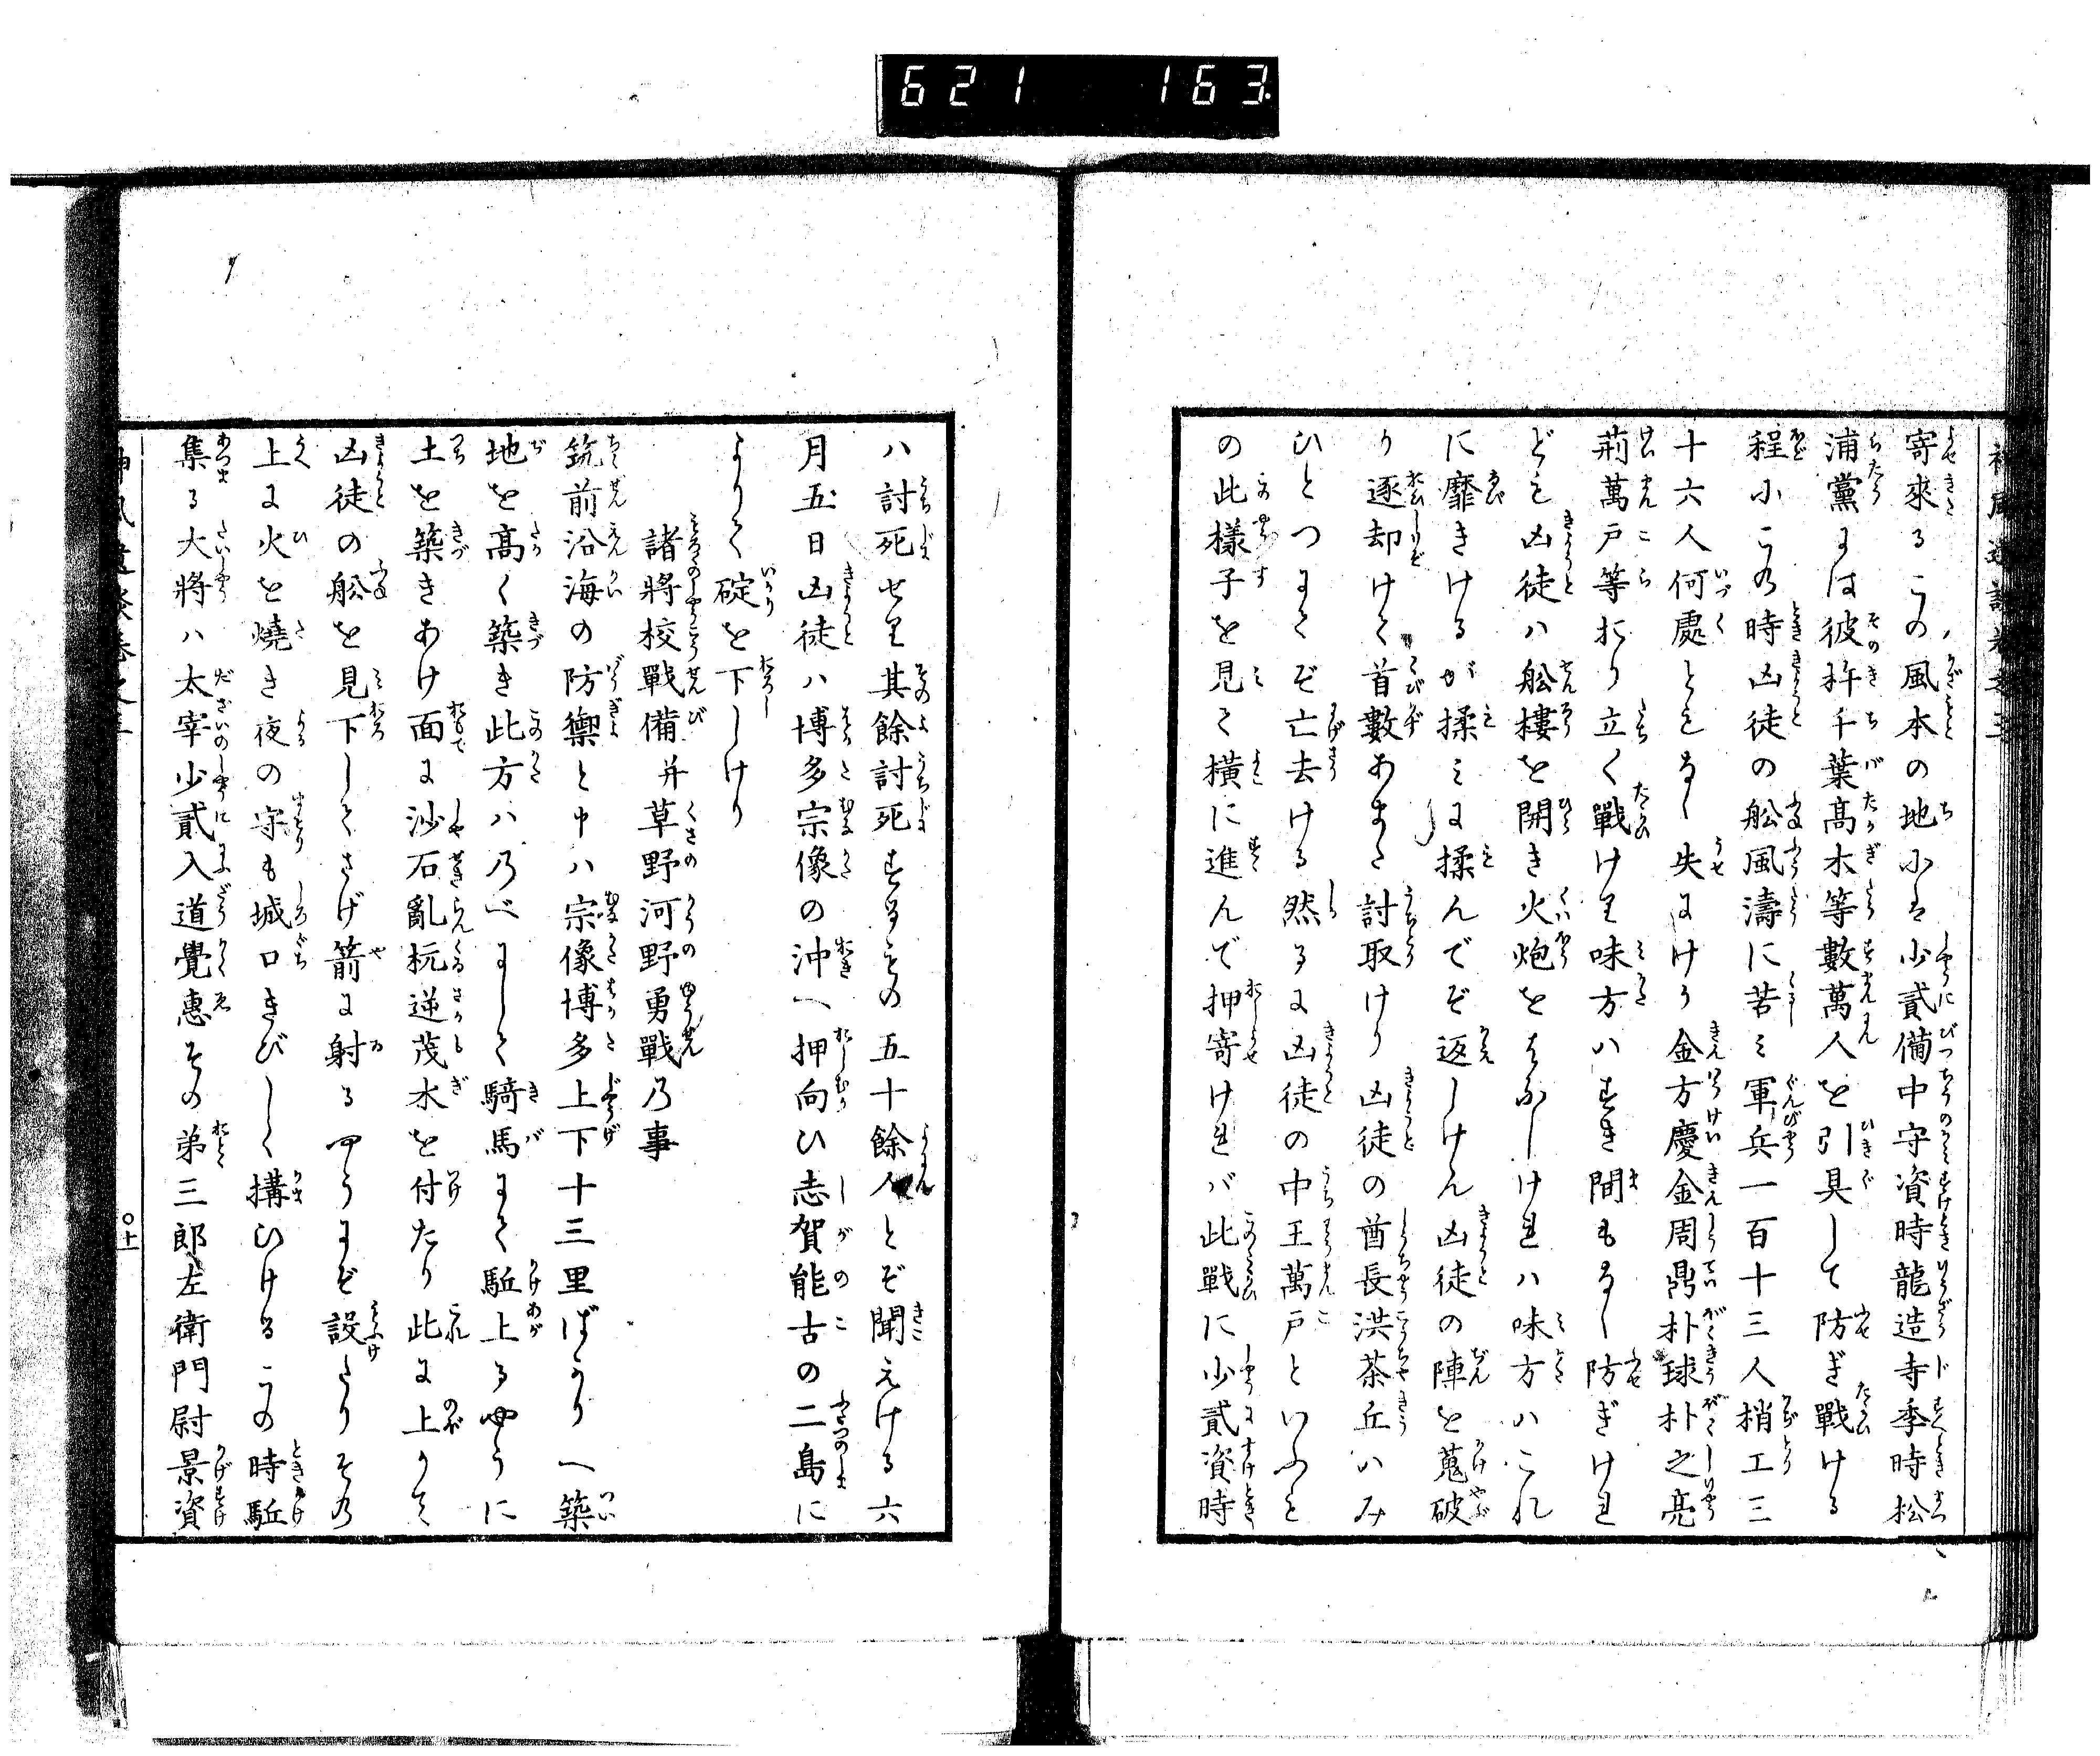 621 163
寄來るこの風本の地小は少貳備中守資時龍造寺季時松
浦黨には彼杵千葉髙木等數萬人を引具して防ぎ戰ける
程小この時凶徒の舩風濤に苦ミ軍兵一百十三人梢工三
十六人何處ともなく失にけり金方慶金周鼎朴球朴之亮
荊萬戸等おり立て戰けり味方ハすき間もなく防ぎけれ
ども凶徒ハ舩樓を開き火炮をはなしけれハ味方ハこれ
に靡きけるが揉ミに揉んでぞ返しけん凶徒の陣を蒐破
り逐却けて首數あまた討取けり凶徒の酋長洪茶丘いみ
ひとつにてぞ亡去ける然るに凶徒の中王萬戸といふも
の此樣子を見て横に進んで押寄けれバ此戰に少貳資時
ハ討死せり其餘討死するもの五十餘人とぞ聞えける六
月五日凶徒ハ博多宗像の沖へ押向ひ志賀能古の二島に
よりて碇を下しけり
諸將校戰備并草野河野勇戰乃事
筑前沿海の防禦と申ハ宗像博多上下十三里ばかりへ築
地を髙く築き此方ハ乃べにして騎馬にて駈上るやうに
土を築きあけ面に沙石亂杭逆茂木を付たり此に上りて
凶徒の舩を見下してさげ箭に射るやうにぞ設たりその
上に火を燒き夜の守も城口きびしく搆ひけるこの時駈
集る大將ハ太宰少貳入道覺惠その弟三郎左衛門尉景資